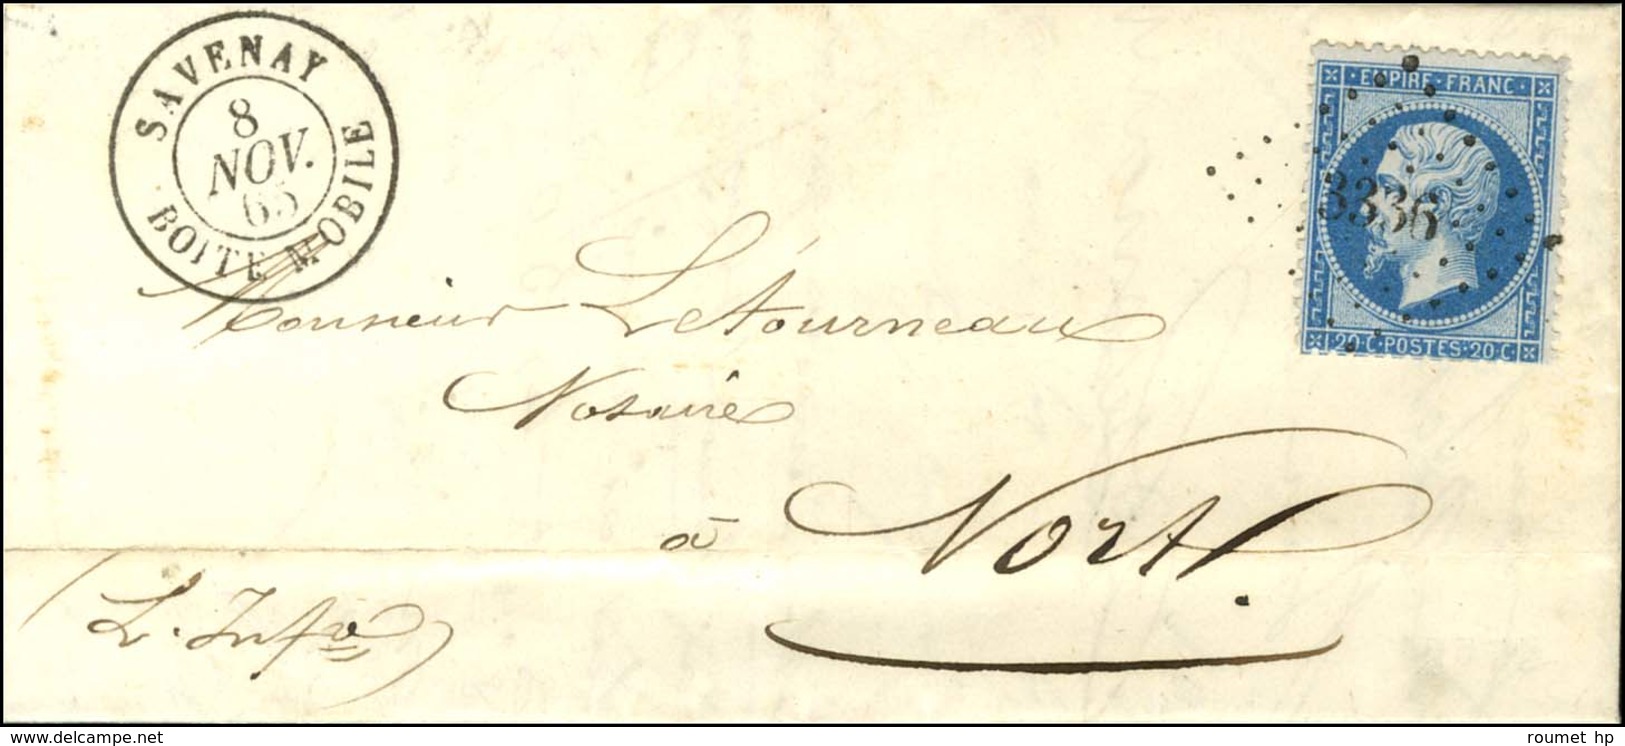 SAVENAY
8
NOV.
65
BOITE MOBILE
EMPIRE · FRANC ·
3336
20 · C · POSTES · 20 · C
Monsieur Letourneau
Notaire
à Nort.
(L. Infre)
delcampe.net
roumet hp